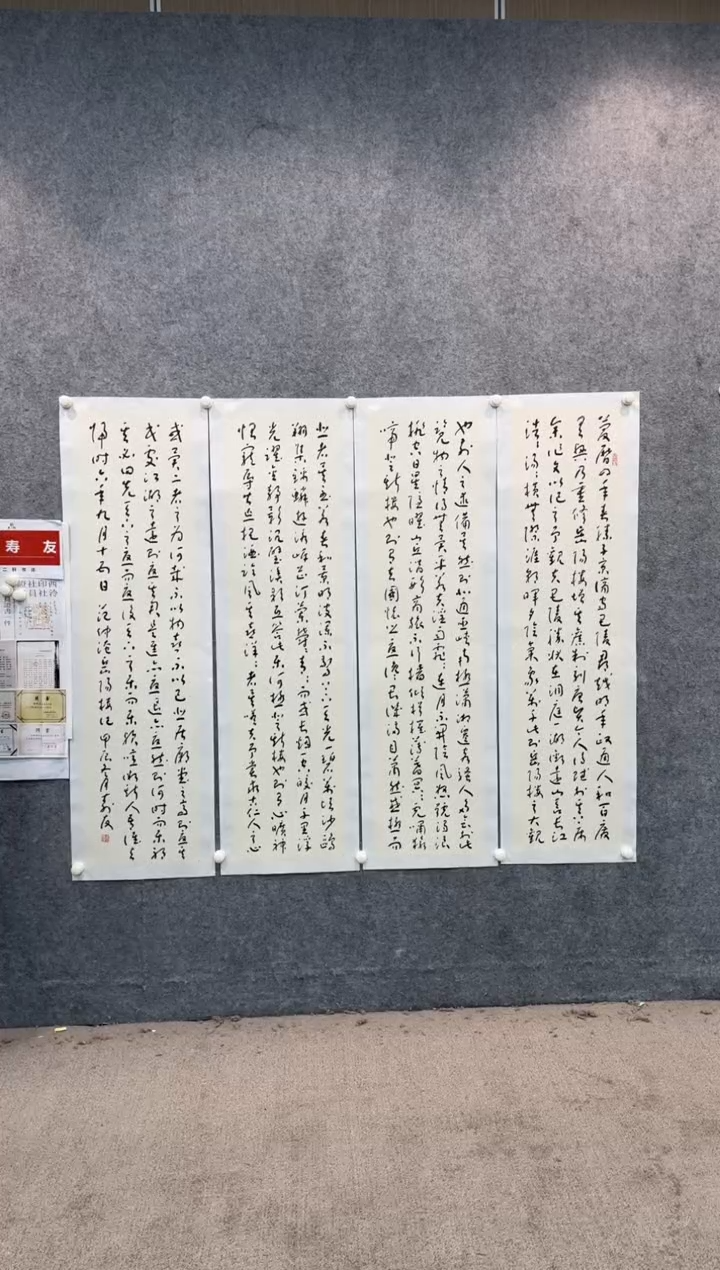 慶曆四年春滕子京謫守巴陵郡越明年政通人和百廢
具興乃重修岳陽樓增其舊制刻唐賢今人詩賦於其上屬
余作文以記之予觀夫巴陵勝狀在洞庭一湖銜遠山吞長江
浩浩湯湯橫無際涯朝暉夕陰氣象萬千此則岳陽樓之大觀
也前人之述備矣然則北通巫峽南極瀟湘遷客騷人多會於此
覽物之情得無異乎若夫淫雨霏霏連月不開陰風怒號濁浪
排空日星隱曜山岳潛形商旅不行檣傾楫摧薄暮冥冥虎嘯猿
啼登斯樓也則有去國懷鄉憂讒畏譏滿目蕭然感極而
悲者矣至若春和景明波瀾不驚上下天光一碧萬頃沙鷗
翔集錦鱗游泳岸芷汀蘭郁郁青青而或長煙一空皓月千里浮
光躍金靜影沉璧漁歌互答此樂何極登斯樓也則有心曠神
怡寵辱皆忘把酒臨風其喜洋洋者矣嗟夫予嘗求古仁人之心
或異二者之為何哉不以物喜不以己悲居廟堂之高則憂其
民處江湖之遠則憂其君是進亦憂退亦憂然則何時而樂耶
其必曰先天下之憂而憂後天下之樂而樂歟噫微斯人吾誰與
歸時六年九月十五日 范仲淹岳陽樓記 甲辰 月寿友
寿 友